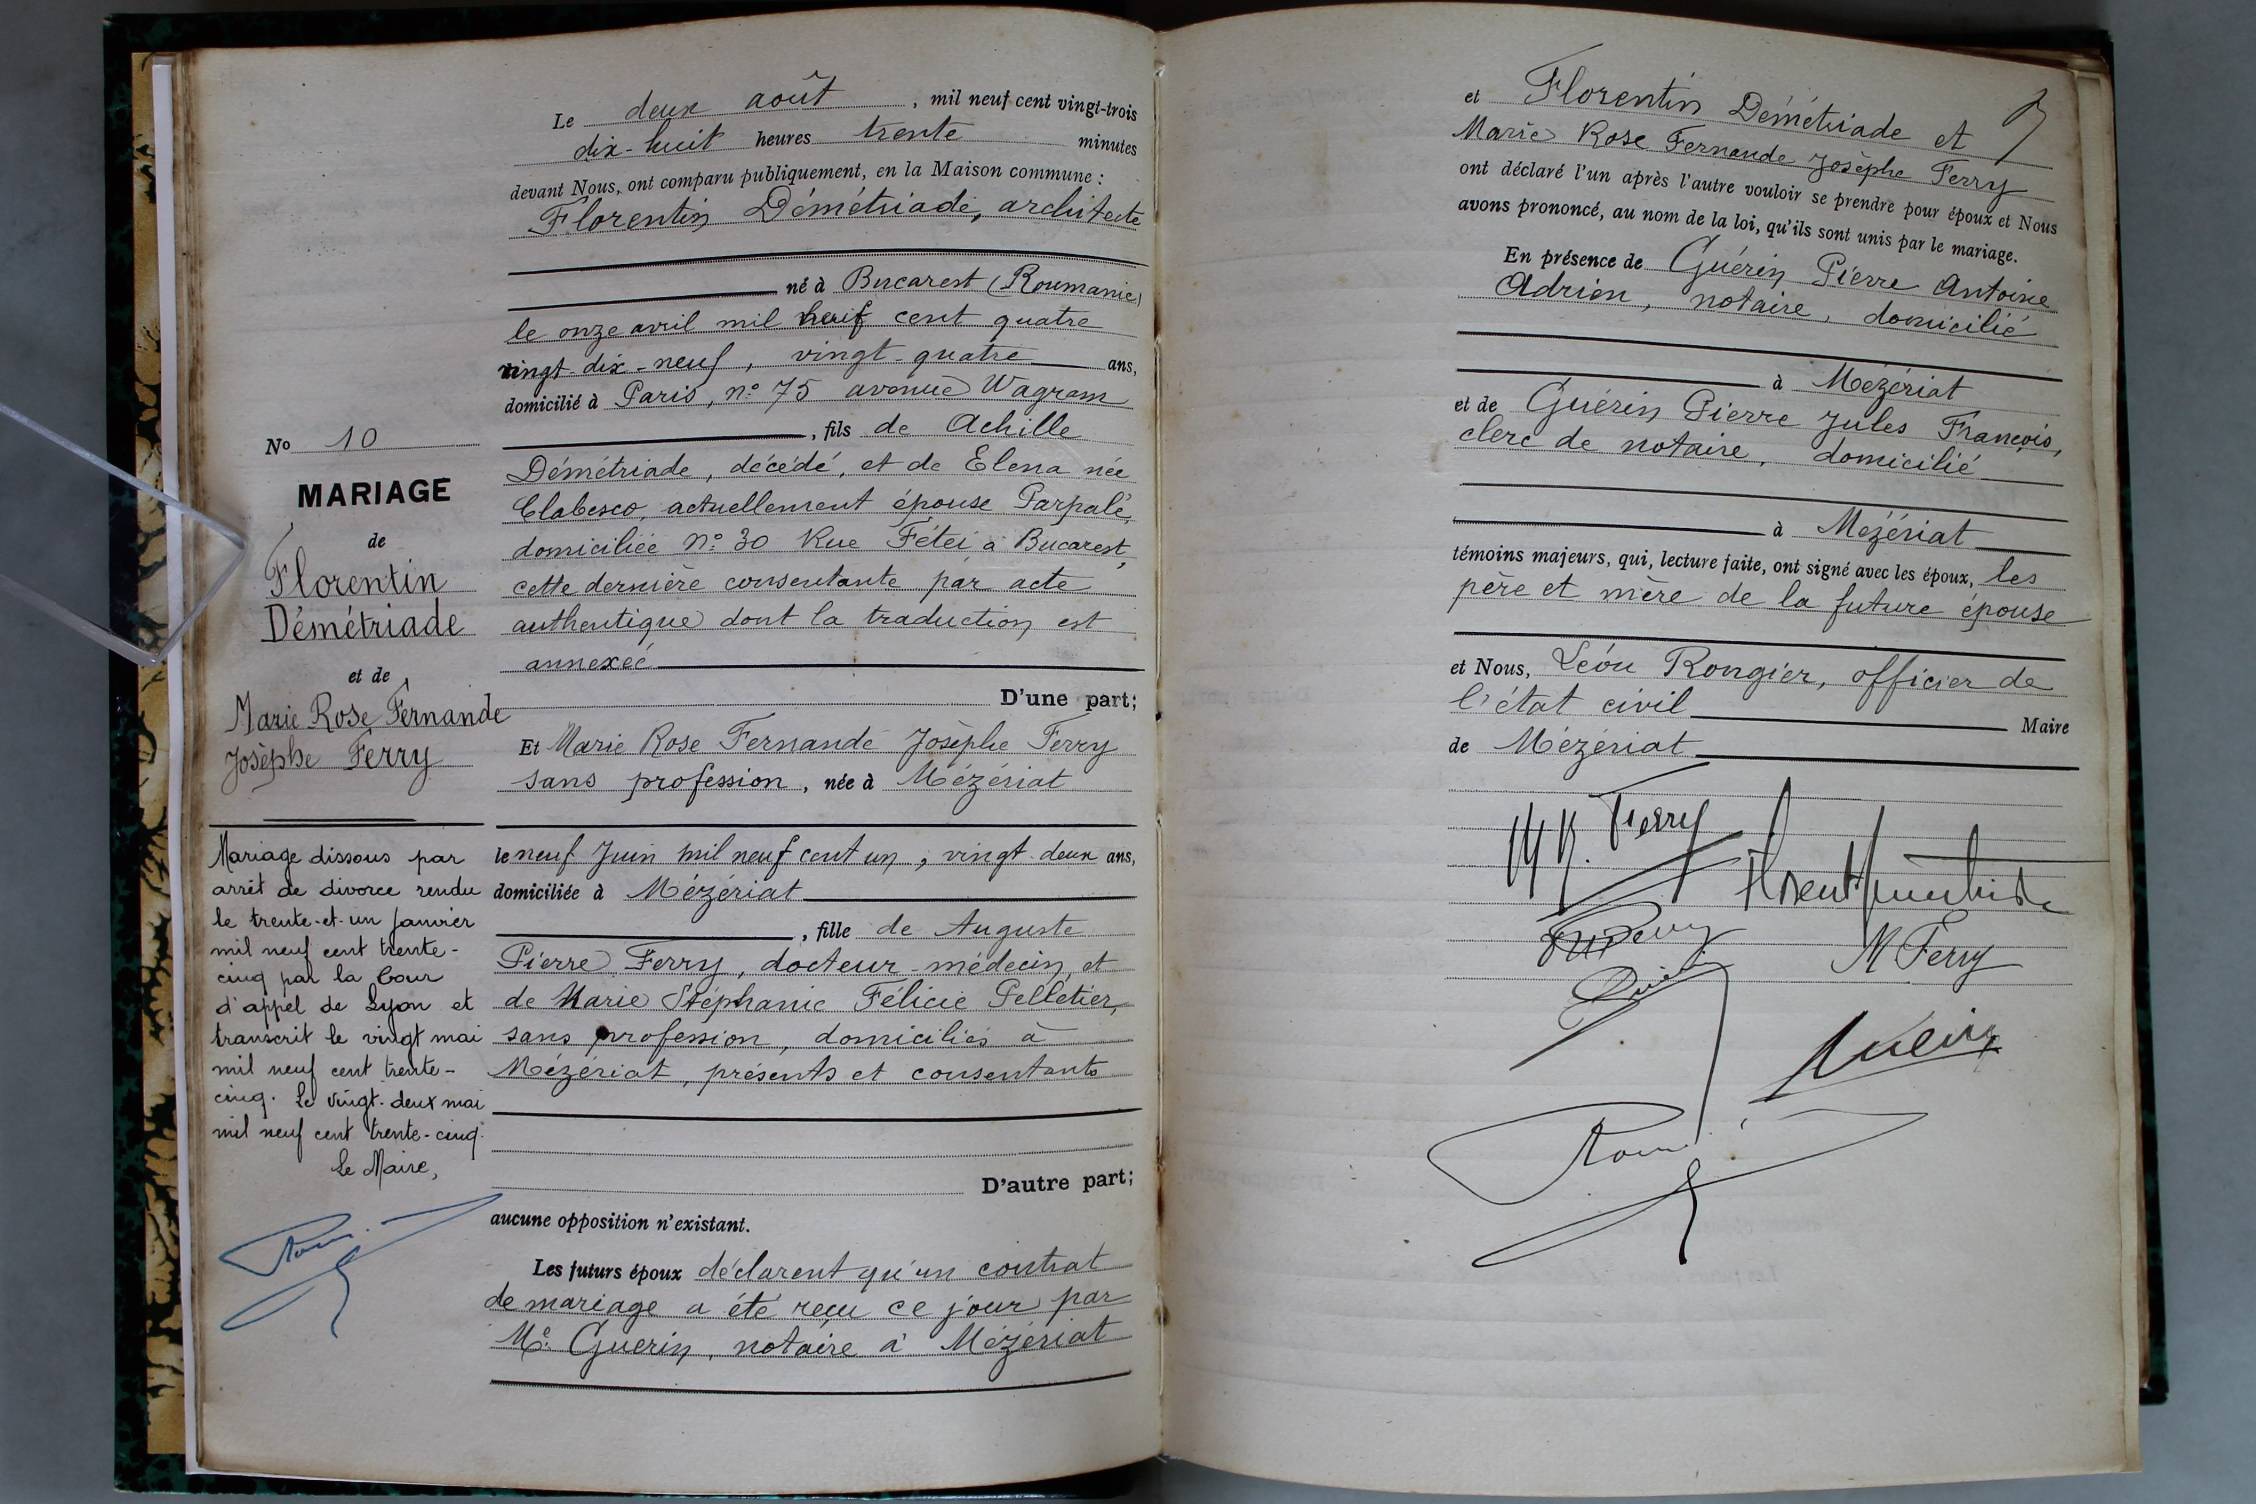 Le deux août, mil neuf cent vingt-trois
dix-huit heures trente minutes
devant Nous, ont comparu publiquement, en la Maison commune :
Florentin Démétriade, architecte
né à Bucarest (Roumanie)
le onze avril mil neuf cent quatre
vingt-dix-neuf, vingt-quatre ans,
domicilié à Paris, n° 75 avenue Wagram
, fils de Achille
Démétriade, décédé, et de Elena née
Clabesco, actuellement épouse Parpalé,
domiciliée N° 30 Rue Fétei à Bucarest,
cette dernière consentante par acte
authentique dont la traduction est
annexée
D'une part;
Et Marie Rose Fernande Josèphe Ferry
sans profession, née à Mézériat
le neuf Juin mil neuf cent un, vingt-deux ans,
domiciliée à Mézériat
, fille de Auguste
Pierre Ferry, docteur-médecin, et
de Marie Stéphanie Félicie Pelletier,
sans profession, domiciliés à
Mézériat, présents et consentants
D'autre part;
aucune opposition n'existant.
Les futurs époux déclarent qu'un contrat
de mariage a été reçu ce jour par
Me Guerin, notaire à Mézériat
No 10
MARIAGE
de
Florentin
Démétriade
et de
Marie Rose Fernande
Josèphe Ferry
Mariage dissous par
arrêt de divorce rendu
le trente-et-un Janvier
mil neuf cent trente-
cinq par la Cour
d'appel de Lyon et
transcrit le vingt mai
mil neuf cent trente-
cinq. Le vingt-deux mai
mil neuf cent trente-cinq.
Le Maire,
et Florentin Démétriade et
Marie Rose Fernande Josèphe Ferry
ont déclaré l'un après l'autre vouloir se prendre pour époux et Nous
avons prononcé, au nom de la loi, qu'ils sont unis par le mariage.
En présence de Guérin Pierre Antoine
Adrien, notaire, domicilié
à Mézériat
et de Guérin Pierre Jules François,
clerc de notaire, domicilié
à Mézériat
témoins majeurs, qui, lecture faite, ont signé avec les époux, les
père et mère de la future épouse
et Nous, Léon Rongier, officier de
l'état civil Maire
de Mézériat
Ferry
M Ferry